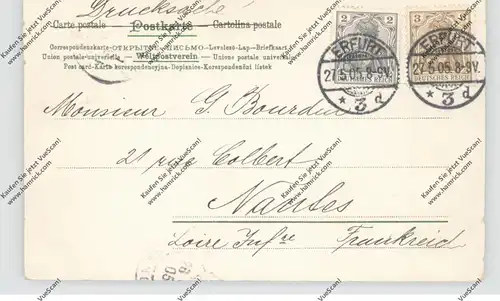 Drucksache
Carte postale Postkarte Cartolina postale
Correspondenzkarte-ОТКРЫТОЕ ПИСЬМО-Levelezö-Lap-Briefkaart
Union postale universelle Weltpostverein Unione postale universale
Post card-Karta korespondencyjna-Dopisnice-Korespondenční lístek
2 3
DEUTSCHES REICH
ERFURT
27.5.05. 8-9V.
* 3 d
ERFURT
27.5.05. 8-9V.
* 3 d
DEUTSCHES REICH
Monsieur G. Bourdin
21 rue Colbert
Nantes
Loire Infre Frankreich
05
Kaufen Sie jetzt VueScan!
www.hamrick.com